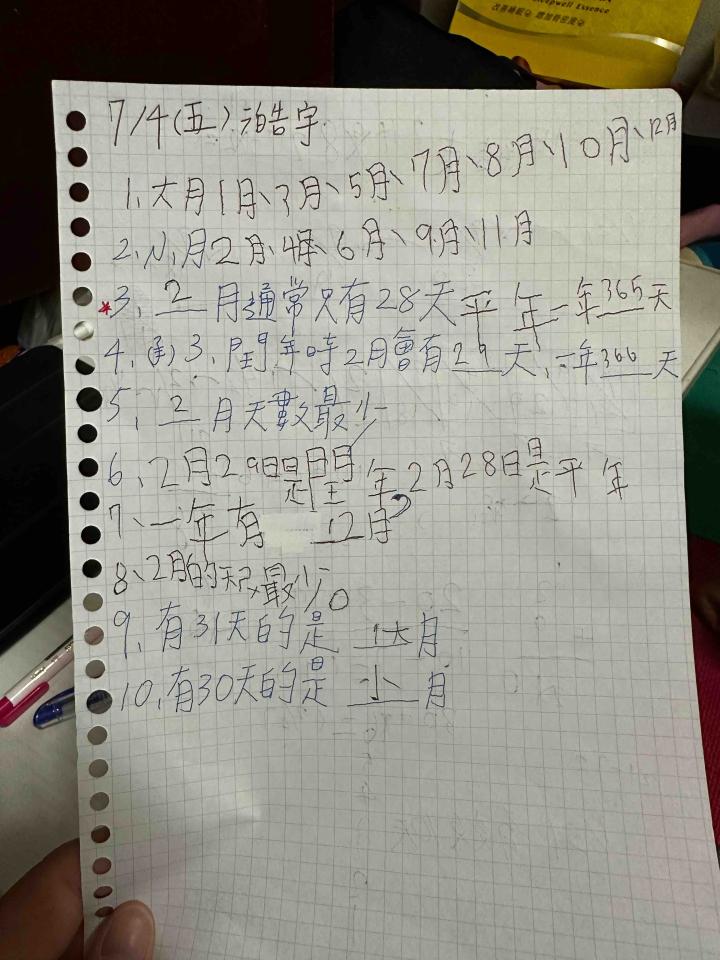 Sleepwell Essence
7/4(五) 治皓宇
1、大月1月、3月、5月、7月、8月、10月、12月
2、小月2月、4月、6月、9月、11月
*3、2月通常只有28天平年一年365天
4、(承)3、閏年時2月會有29天、一年366天
5、2月天數最少
6、2月29日是閏年2月28日是平年
7、一年有 12月
8、2月的天數最少。
9、有31天的是 大月
10、有30天的是 小月